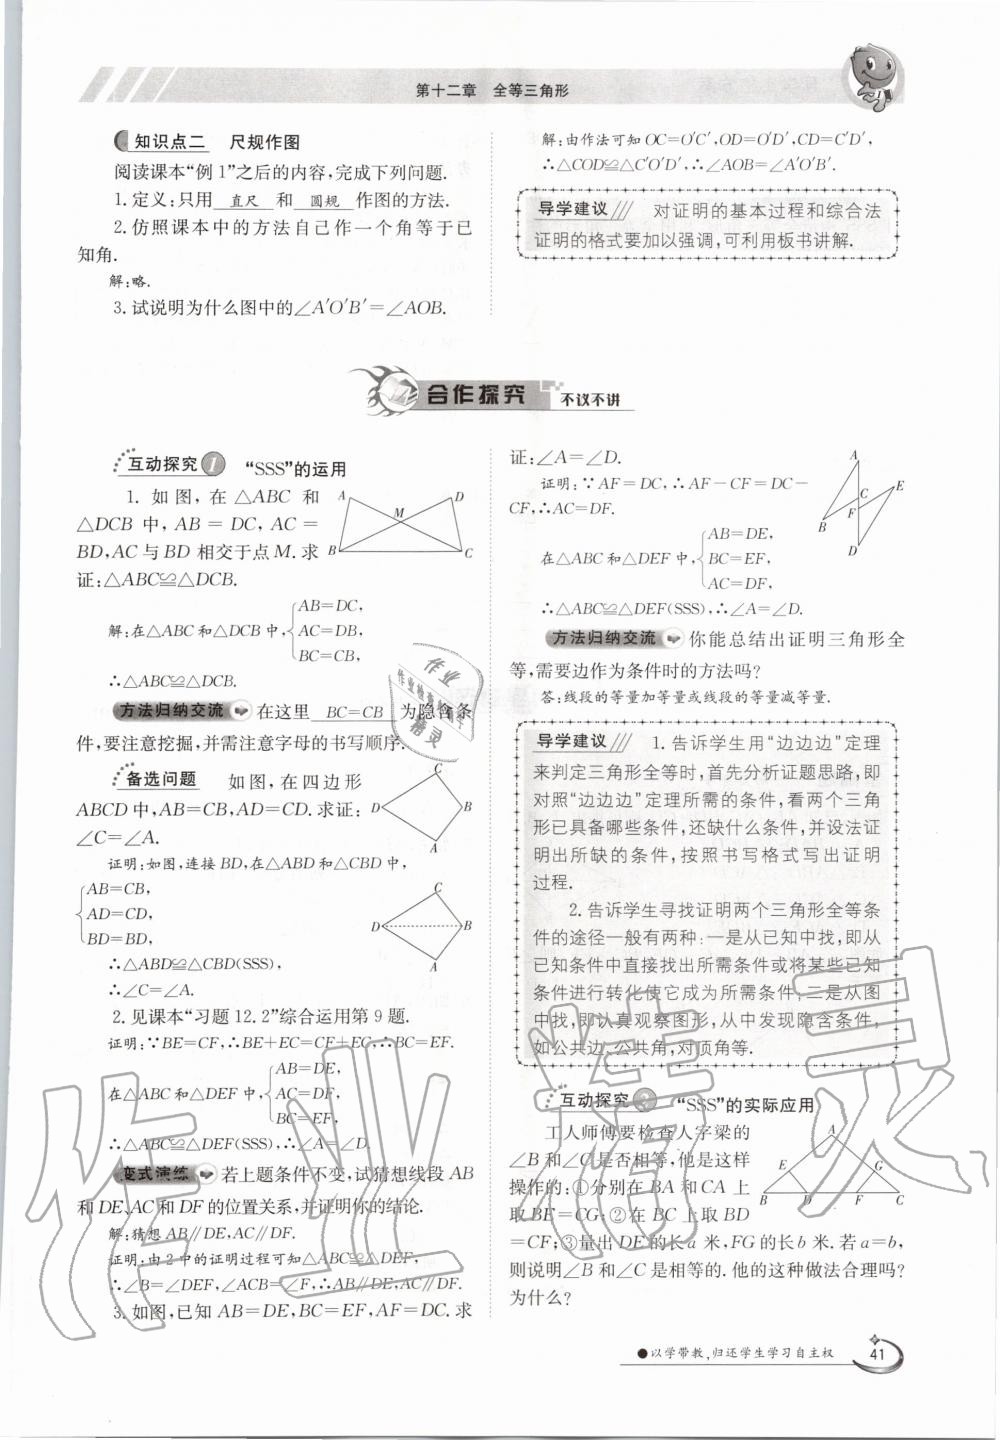 第十二章 全等三角形
知识点二 尺规作图
阅读课本“例1”之后的内容,完成下列问题.
1.定义:只用 直尺 和 圆规 作图的方法.
2.仿照课本中的方法自己作一个角等于已
知角.
解:略.
3.试说明为什么图中的∠A′O′B′=∠AOB.
解:由作法可知OC=O′C′,OD=O′D′,CD=C′D′,
∴△COD≌△C′O′D′,∴∠AOB=∠A′O′B′.
导学建议 对证明的基本过程和综合法
证明的格式要加以强调,可利用板书讲解.
合作探究 不议不讲
互动探究1 “SSS”的运用
1. 如图,在△ABC 和
△DCB 中,AB = DC,AC =
BD,AC与BD 相交于点M.求
证:△ABC≌△DCB.
A D M B C
解:在△ABC和△DCB中,
AB=DC,
AC=DB,
BC=CB,
∴△ABC≌△DCB.
方法归纳交流 在这里 BC=CB 为隐含条
件,要注意挖掘,并需注意字母的书写顺序.
备选问题 如图,在四边形
ABCD中,AB=CB,AD=CD.求证:
∠C=∠A.
C D B A
证明:如图,连接BD,在△ABD和△CBD中,
AB=CB,
AD=CD,
BD=BD,
C D B A
∴△ABD≌△CBD(SSS),
∴∠C=∠A.
2.见课本“习题12.2”综合运用第9题.
证明:∵BE=CF,∴BE+EC=CF+EC,∴BC=EF.
在△ABC和△DEF中,
AB=DE,
AC=DF,
BC=EF,
∴△ABC≌△DEF(SSS),∴∠A=∠D.
变式演练 若上题条件不变,试猜想线段AB
和DE、AC和DF的位置关系,并证明你的结论.
解:猜想AB∥DE,AC∥DF.
证明:由2中的证明过程可知△ABC≌△DEF,
∴∠B=∠DEF,∠ACB=∠F,∴AB∥DE,AC∥DF.
3.如图,已知AB=DE,BC=EF,AF=DC.求
证:∠A=∠D.
证明:∵AF=DC,∴AF-CF=DC-
CF,∴AC=DF.
A E C F B D
在△ABC和△DEF中,
AB=DE,
BC=EF,
AC=DF,
∴△ABC≌△DEF(SSS),∴∠A=∠D.
方法归纳交流 你能总结出证明三角形全
等,需要边作为条件时的方法吗?
答:线段的等量加等量或线段的等量减等量.
导学建议 1.告诉学生用“边边边”定理
来判定三角形全等时,首先分析证题思路,即
对照“边边边”定理所需的条件,看两个三角
形已具备哪些条件,还缺什么条件,并设法证
明出所缺的条件,按照书写格式写出证明
过程.
2.告诉学生寻找证明两个三角形全等条
件的途径一般有两种:一是从已知中找,即从
已知条件中直接找出所需条件或将某些已知
条件进行转化使它成为所需条件;二是从图
中找,即认真观察图形,从中发现隐含条件,
如公共边、公共角,对顶角等.
互动探究2 “SSS”的实际应用
工人师傅要检查人字梁的
∠B和∠C是否相等,他是这样
操作的:①分别在BA和CA上
取BE=CG;②在BC上取BD
=CF;③量出DE的长a米,FG的长b米.若a=b,
则说明∠B和∠C是相等的.他的这种做法合理吗?
为什么?
A E G B D F C
●以学带教,归还学生学习自主权
41
作业精灵
作业
作业检查
精灵